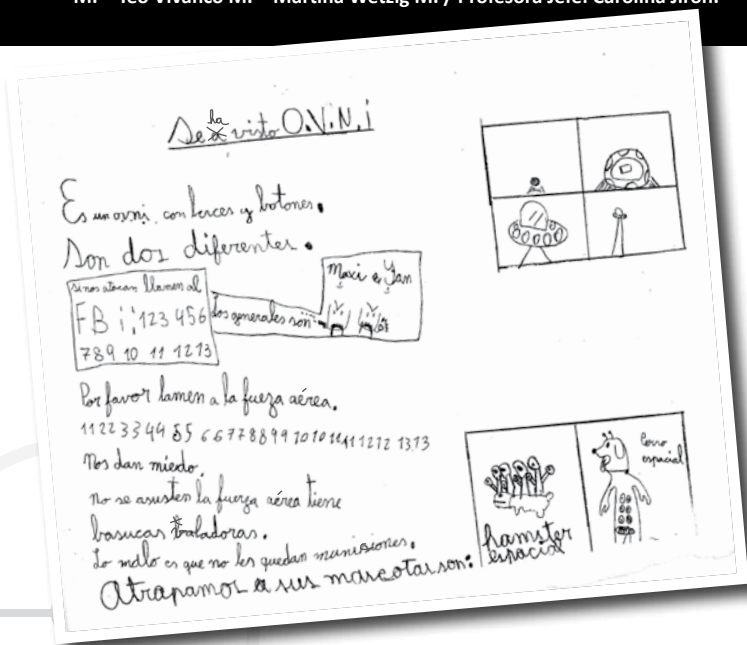 M. – Teo Vivanco M. – Martina Wetzig M. / Profesora Jefe: Carolina Jirón.
Se ha visto O.V.N.i
Es un ovni con luces y botones.
Son dos diferentes.
Si nos atacan llamen al
FBi: 123 456
789 10 11 12 13
los generales son:
Maxi e Yan
Por favor lamen a la fueza aérea.
11 22 33 44 55 66 77 88 99 1010 1111 1212 1313
Nos dan miedo.
no se asusten la fuerza aérea tiene
basucas baladoras.
Lo malo es que no les quedan munisiones.
Atrapamos a sus mascotas son:
hamster
espacial
Perro
espacial